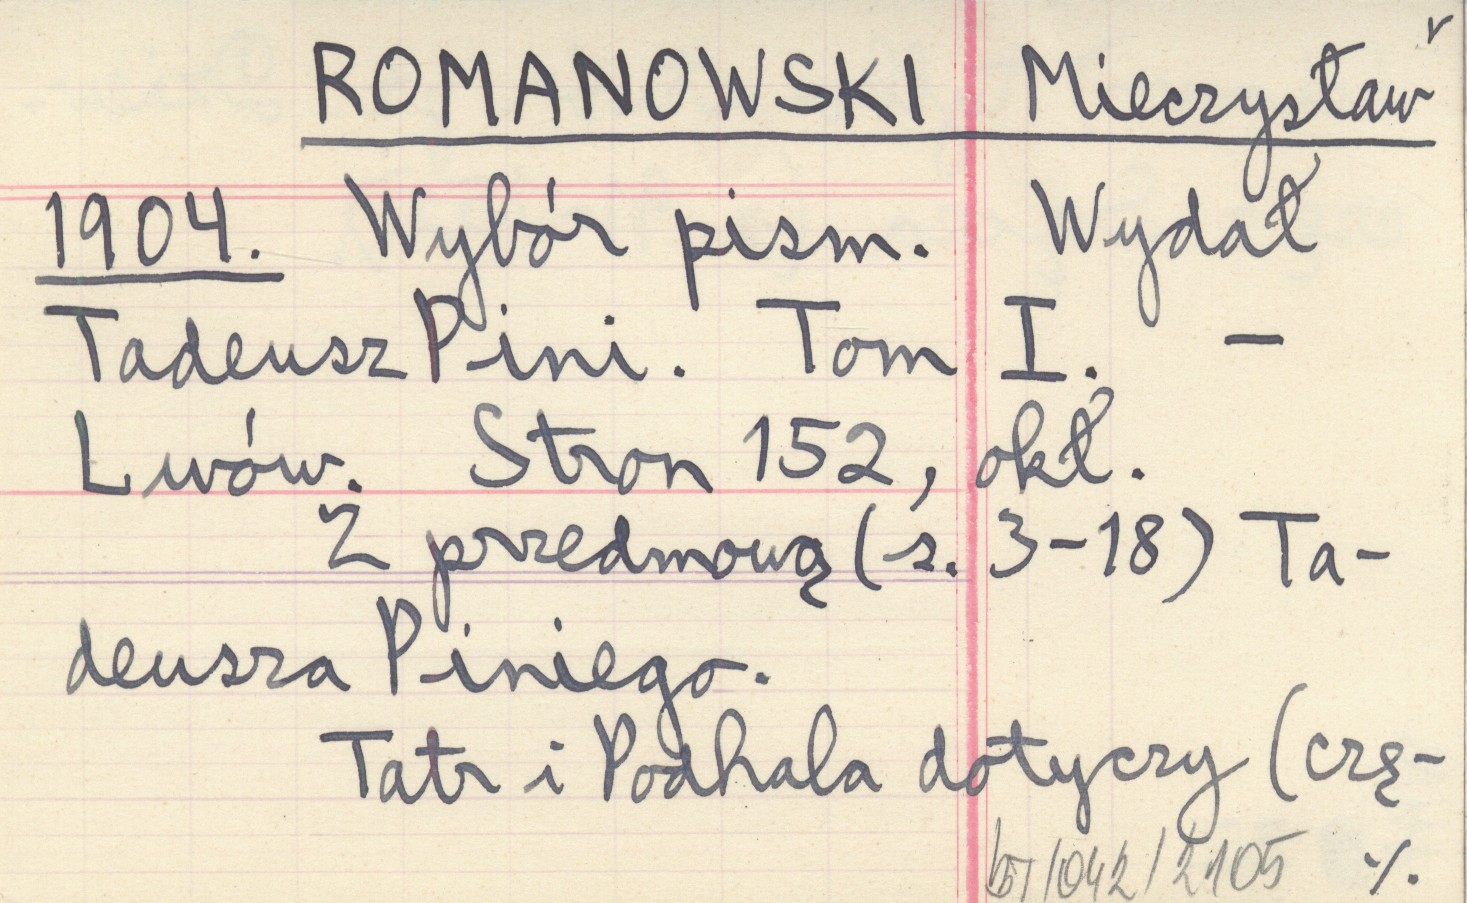 ROMANOWSKI Mieczysław
1904. Wybór pism. Wydał
Tadeusz Pini. Tom I. –
Lwów. Stron 152, okł.
Z przedmową (s. 3-18) Ta-
deusza Piniego.
Tatr i Podhala dotyczy (czę-
/042/2105 ./.